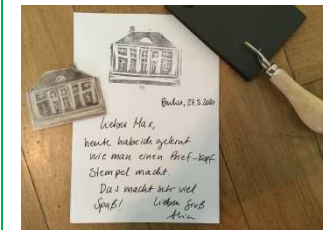 Berlin, 27.5.2020
Lieber Max,
heute habe ich gelernt
wie man einen Brief-Kopf
Stempel macht.
Das macht sehr viel
Spaß! Lieben Gruß